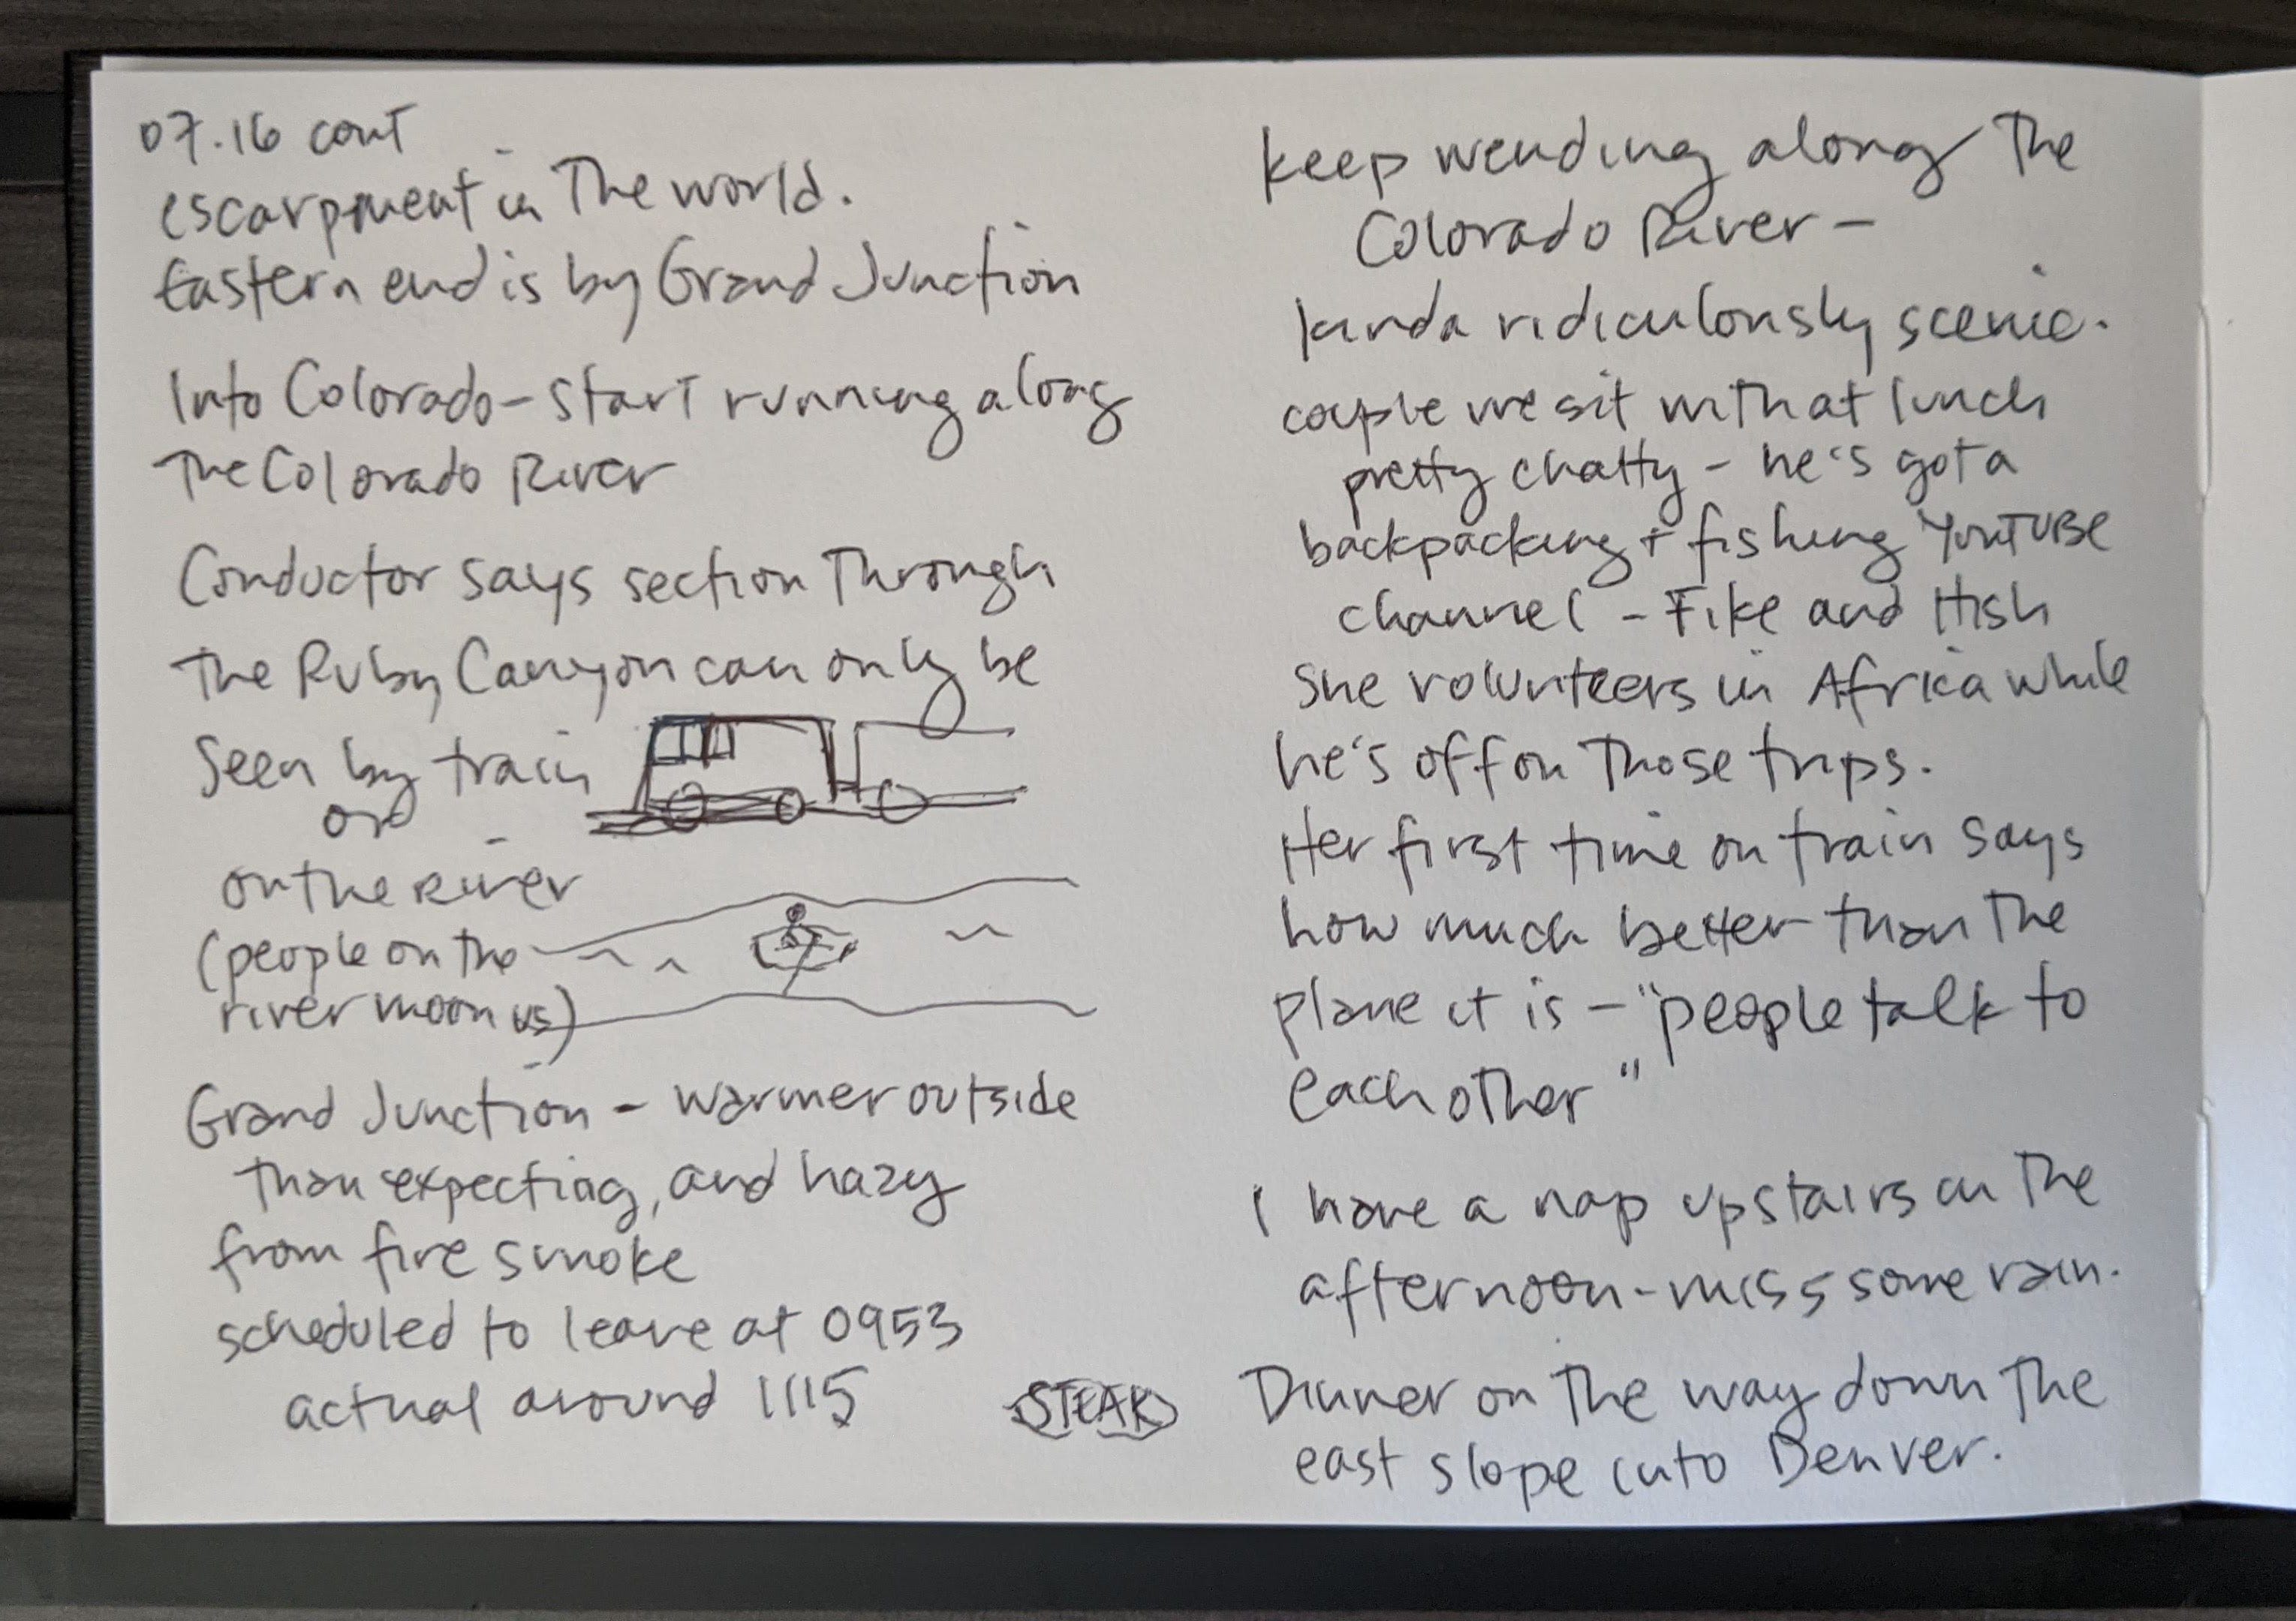 07.16 cont
escarpment in The world.
Eastern end is by Grand Junction
Into Colorado – start running along
The Colorado River
Conductor says section Through
the Ruby Canyon can only be
seen by train
or
on the River
(people on the
river moon us)
Grand Junction – warmer outside
than expecting, and hazy
from fire smoke
scheduled to leave at 0953
actual around 1115
keep wending along The
Colorado River –
kinda ridiculously scenic.
couple we sit with at lunch
pretty chatty – he's got a
backpacking + fishing YouTUBE
channel – Fike and Hish
She volunteers in Africa while
he's off on Those trips.
Her first time on train says
how much better than The
plane it is – "people talk to
each other"
I have a nap upstairs in The
afternoon – miss some rain.
STEAK
Dinner on The way down The
east slope into Denver.